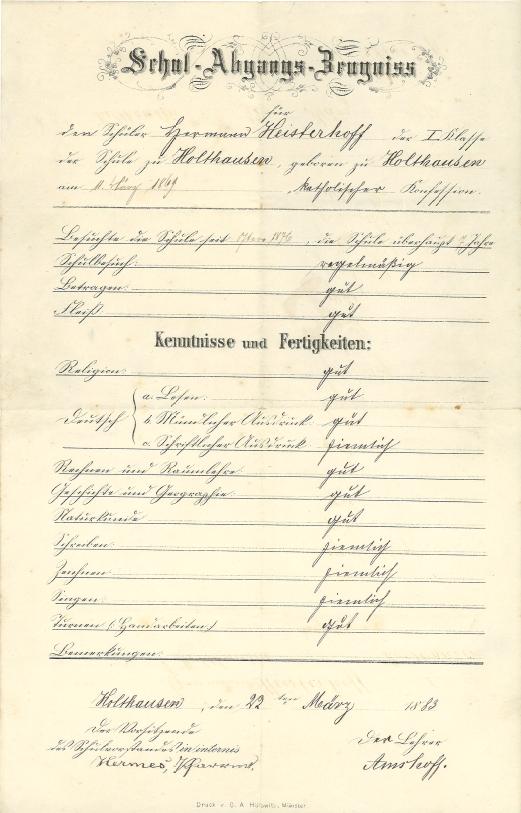 Schul-Abgangs-Zeugniss
für
den Schüler Hermann Heisterhoff der I Klasse
der Schule zu Holthausen, geboren zu Holthausen
am 11. März katholischer Konfession.
Besuchte die Schule seit Ostern 1876, die Schule überhaupt 7 Jahre
Schulbesuch: regelmäßig
Betragen: gut
Fleiß gut
Kenntnisse und Fertigkeiten:
Religion: gut
Deutsch
a. Lesen: gut
b. Mündlicher Ausdruck: gut
c. Schriftlicher Ausdruck: ziemlich
Rechnen und Raumlehre: gut
Geschichte und Geographie: gut
Naturkunde gut
Schreiben: ziemlich
Zeichnen: ziemlich
Singen: ziemlich
Turnen (Handarbeiten) gut
Bemerkungen:
Holthausen, den 22 ten März 1883
Der Vorsitzende
des Schulvorstandes in internis
Der Lehrer
Hermes, Pfarrer.
Amshoff.